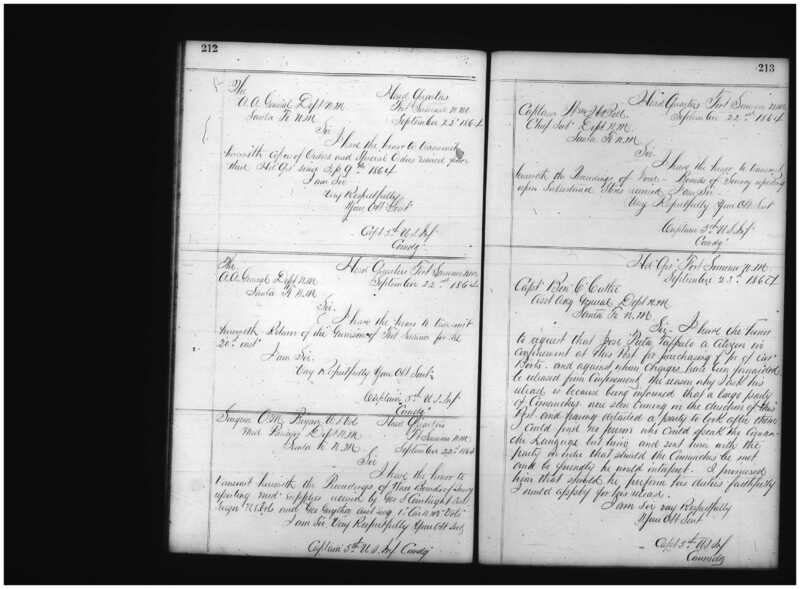 212
The
A.A. General Dept N.M.
Santa Fe N.M.
Head Quarters
Fort Sumner N.M.
September 22d 1864
Sir
I have the honor to transmit
herewith Copies of Orders and Special Orders issued from
these Hd Qrs since Sept 9th 1864
I am Sir
Very Respectfully
Your Obt Servt
Capt 5th U.S. Inf
Comdg
The
A.A. General Dept N.M.
Santa Fe N.M.
Head Quarters Fort Sumner N.M.
September 22nd 1864
Sir,
I have the honor to transmit
herewith Return of the Garrison of Fort Sumner for the
20th inst
I am Sir
Very Respectfully Your Obt Servt
Captain 5th U.S. Inf
Comdg
Surgeon O.M. Bryan U.S. Vol
Med Dept N.M.
Santa Fe N.M.
Head Quarters
Ft Sumner N.M.
September 22d 1864
Sir
I have the honor to
transmit herewith the Proceedings of three Boards of Survey
reporting med supplies received by Geo S Courtright Asst
Surgn U.S. Vols and Geo Gwyther asst surg 1st Cav N.M. Vols
I am Sir Very Respectfully Your Obt Servt
Captain 5th U.S. Inf Comdg
213
Head Quarters Fort Sumner N.M.
September 22nd 1864
Captain Wm H Bell
Chief Sub Dept N.M.
Santa Fe N.M.
Sir
I have the honor to transmit
herewith the Proceedings of Four Boards of Survey reporting
upon Subsistence Stores received I am Sir
Very Respectfully Your Obt Servt
Captain 5th U.S. Inf
Comdg
Hd Qrs Fort Sumner N.M.
September 23d 1864
Capt Ben C Cutler
Asst Adj General Dept N.M.
Santa Fe N.M.
Sir I have the honor
to request that Jose a Citizen in
confinement at this Post for purchasing a pr of Cav
Boots, and against whom Charges have been forwarded
be released from Confinement, the reason why I ask his
release is because being informed that a large party
of Comanches were seen coming in the direction of this
Post and having detailed a party to look after them
I could find no person who could speak the Coman-
che Language but him and sent him with the
party in order that should the Comanches be met
and be friendly he would interpret. I promised
him that should he perform his duties faithfully
I would apply for his release.
I am Sir very Respectfully
Your Obt Servt
Capt 5th U.S. Inf
Commdg